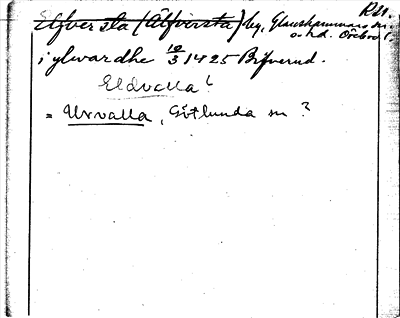 RA.
Elfversta (Älfversta) by, Glanshammars sn.
o. hd. Örebro l.
i ylwardhe 10/3 1425 Brfverud.
Eldvalla!
= Urvalla, Götlunda sn?